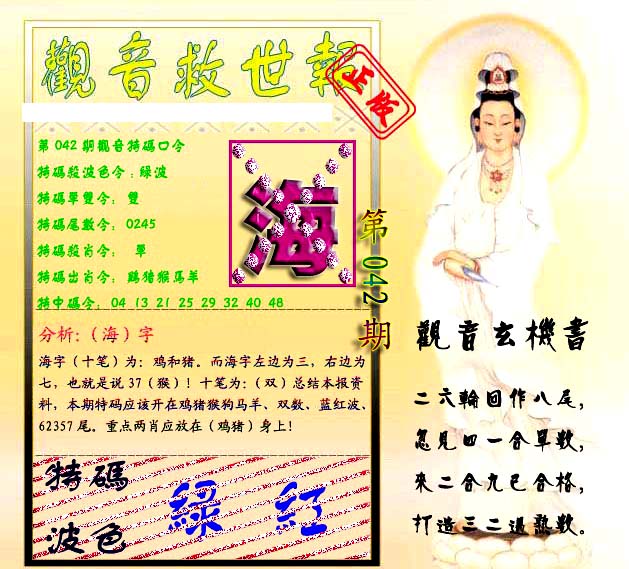 觀音救世報
正版
第042期觀音特碼口令
特碼殺波色令：綠波
特碼單雙令： 雙
特碼尾數令： 0245
特碼殺肖令： 單
特碼出肖令： 鷄猪猴馬羊
特中碼令： 04 13 21 25 29 32 40 48
海
第042期
分析:（海）字
海字（十笔）为：鸡和猪。而海字左边为三，右边为
七，也就是说 37（猴）！十笔为:（双）总结本报资
料，本期特码应该开在鸡猪猴狗马羊、双数、蓝红波、
62357 尾。重点两肖应放在（鸡猪）身上！
特碼
波色
綠 紅
觀音玄機書
二六輪回作八尾，
忽見四一合單數，
來二合九已合格，
打造三二過熟數。